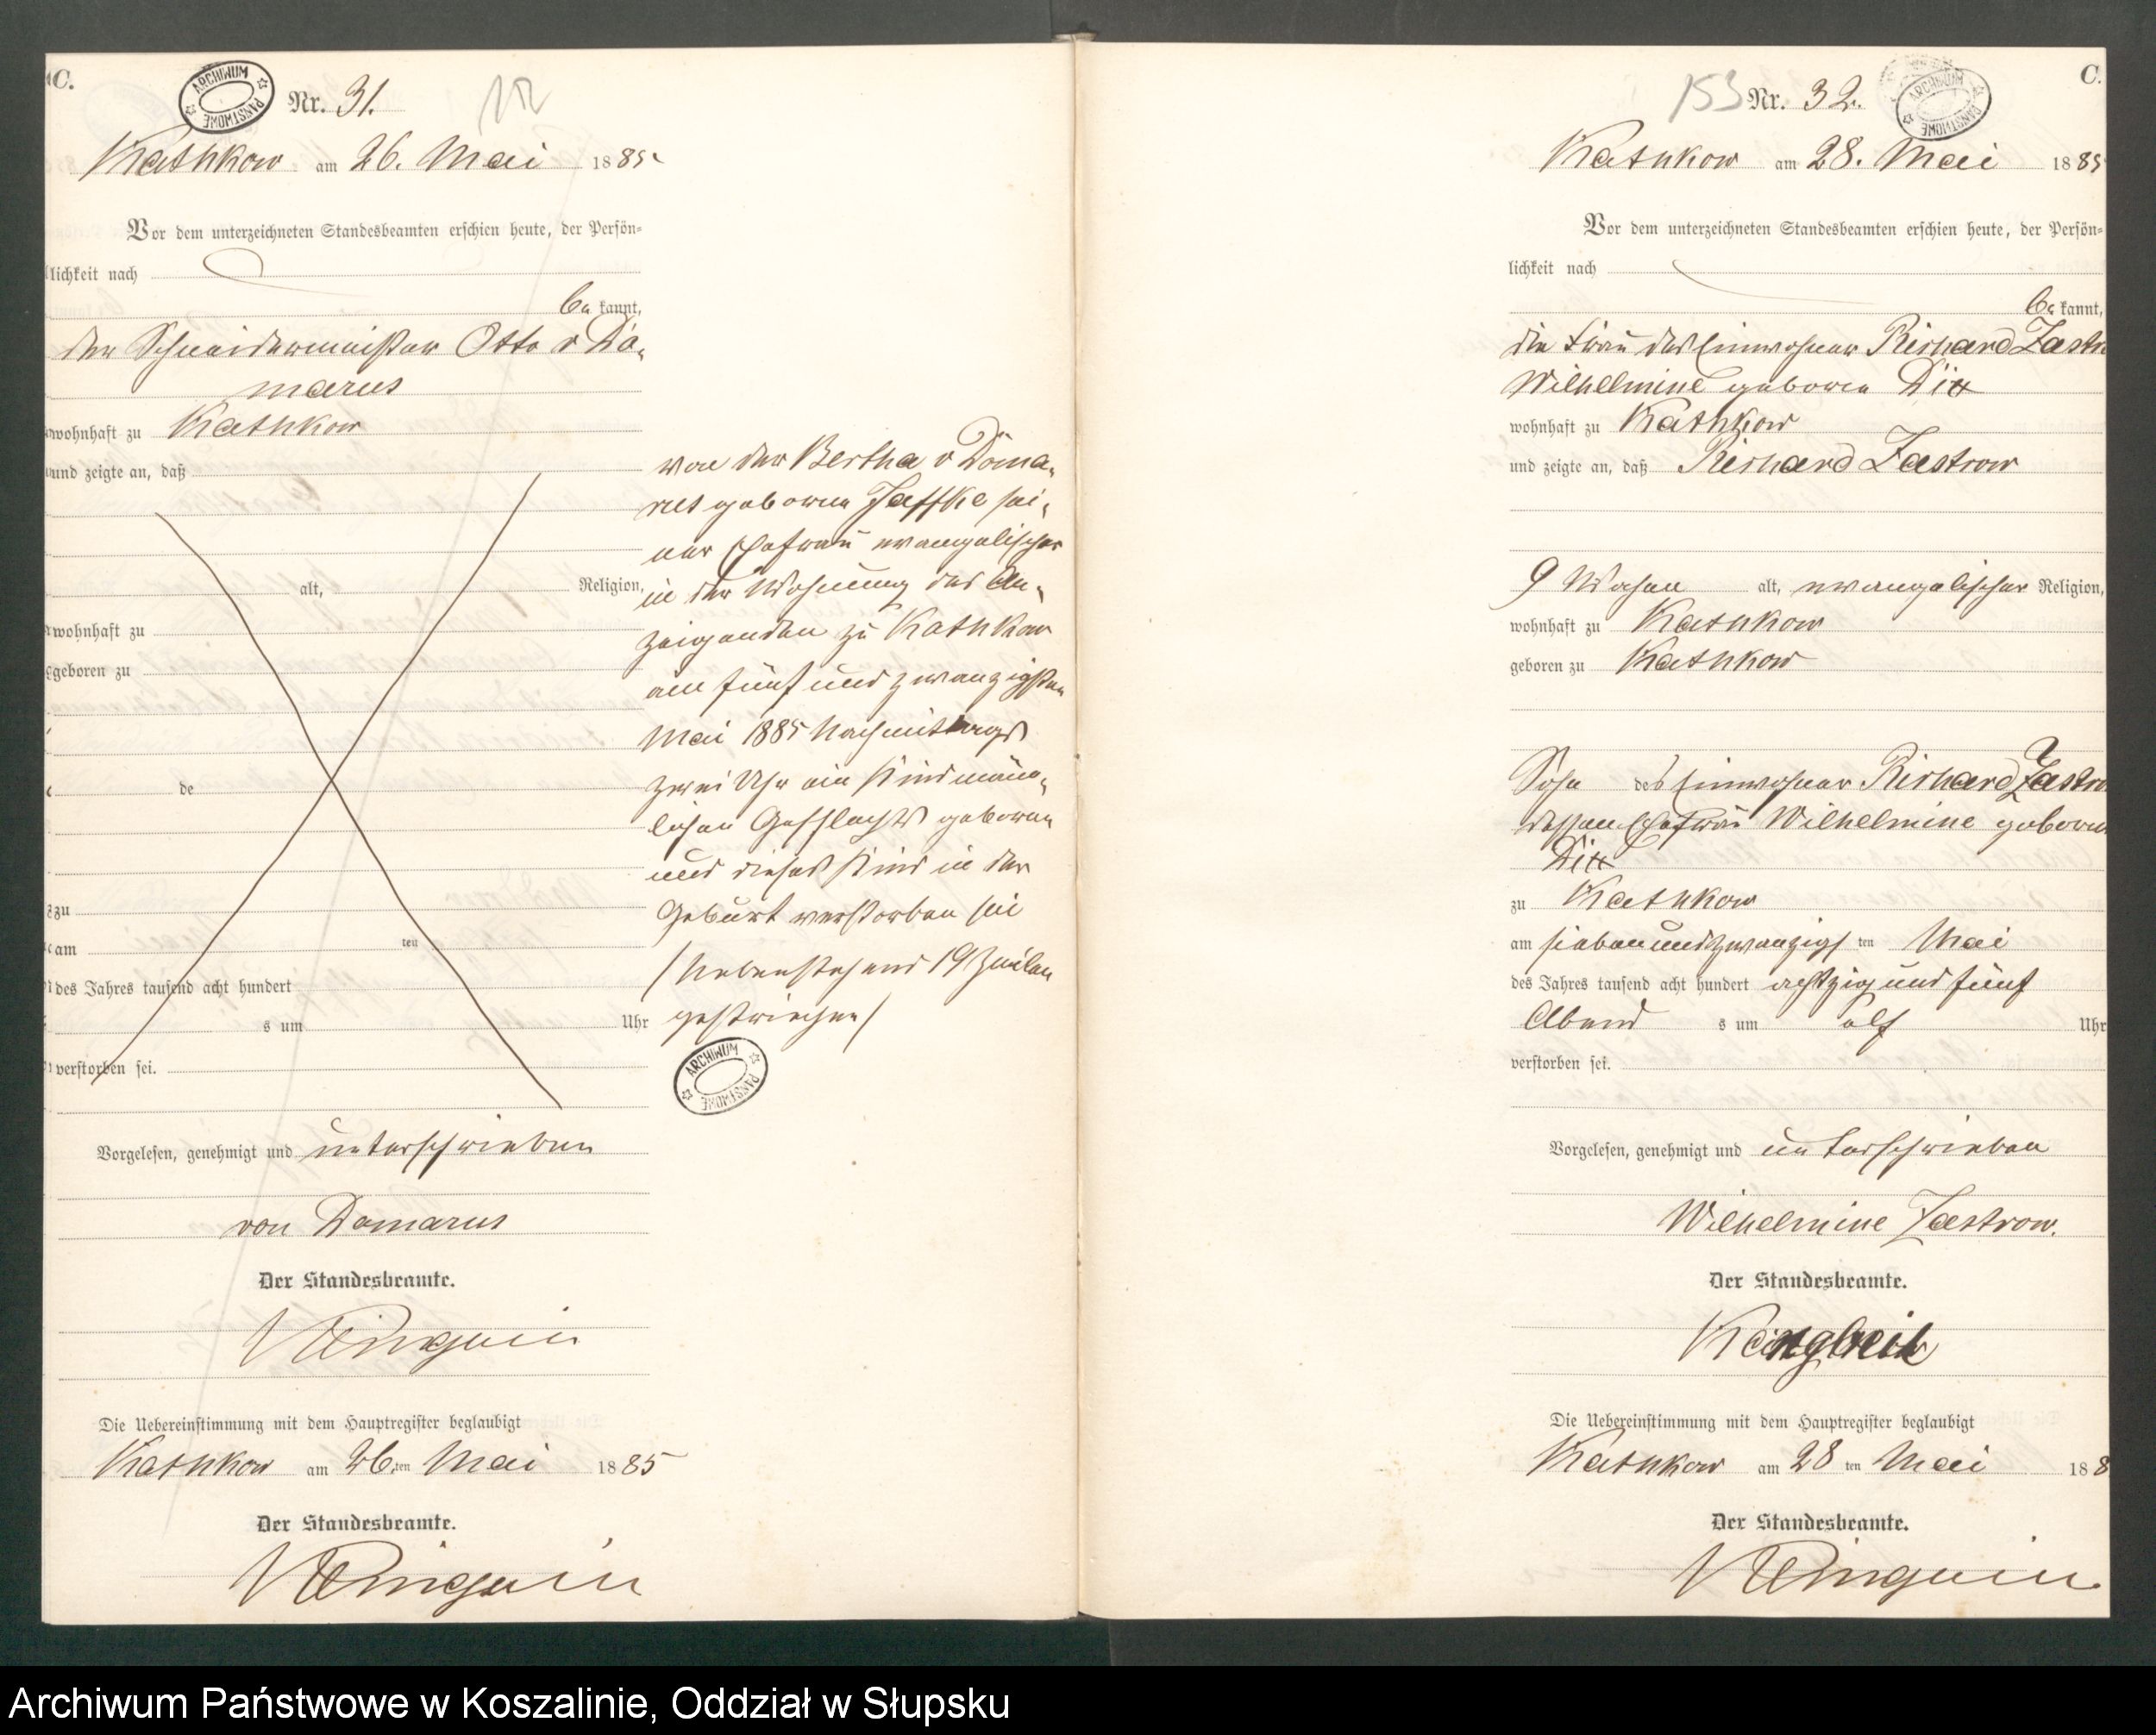 C.
ARCHIWUM PAŃSTWOWE
Nr. 31.
152
Kathkow am 26. Mai 1885.
Vor dem unterzeichneten Standesbeamten erschien heute, der Persön=
lichkeit nach
be kannt,
der Schneidermeister Otto v Do-
marus
wohnhaft zu Kathkow
und zeigte an, daß
alt, Religion,
wohnhaft zu
geboren zu
de
zu
am ten
des Jahres tausend acht hundert
s um Uhr
verstorben sei.
von der Bertha v Doma-
rus geborne Jaffke sei-
ner Ehefrau evangelischer
in der Wohnung des An-
zeigenden zu Kathkow
am fünf und zwanzigsten
Mai 1885 Nachmittags
zwei Uhr ein Kind männ-
lichen Geschlechts geboren
und dieses Kind in der
Geburt verstorben sei
/Nebenstehend 19 Zeilen
gestrichen/
ARCHIWUM PAŃSTWOWE
Vorgelesen, genehmigt und unterschrieben
von Domarus
Der Standesbeamte.
Die Uebereinstimmung mit dem Hauptregister beglaubigt
Kathkow am 26. ten Mai 1885
Der Standesbeamte.
C.
153 Nr. 32.
ARCHIWUM PAŃSTWOWE
Kathkow am 28. Mai 1885
Vor dem unterzeichneten Standesbeamten erschien heute, der Persön=
lichkeit nach
be kannt,
die Frau des Einwohner Richard Zastro
Wilhelmine geborene Dix
wohnhaft zu Kathkow
und zeigte an, daß Richard Zastrow
9 Wochen alt, evangelischer Religion,
wohnhaft zu Kathkow
geboren zu Kathkow
Sohn des Einwohner Richard Zastro
dessen Ehefrau Wilhelmine geborne
Dix
zu Kathkow
am siebenundzwanzigs ten Mai
des Jahres tausend acht hundert achtzig und fünf
Abend s um elf Uhr
verstorben sei.
Vorgelesen, genehmigt und unterschrieben
Wilhelmine Zastrow.
Der Standesbeamte.
Die Uebereinstimmung mit dem Hauptregister beglaubigt
Kathkow am 28 ten Mai 188
Der Standesbeamte.
Archiwum Państwowe w Koszalinie, Oddział w Słupsku